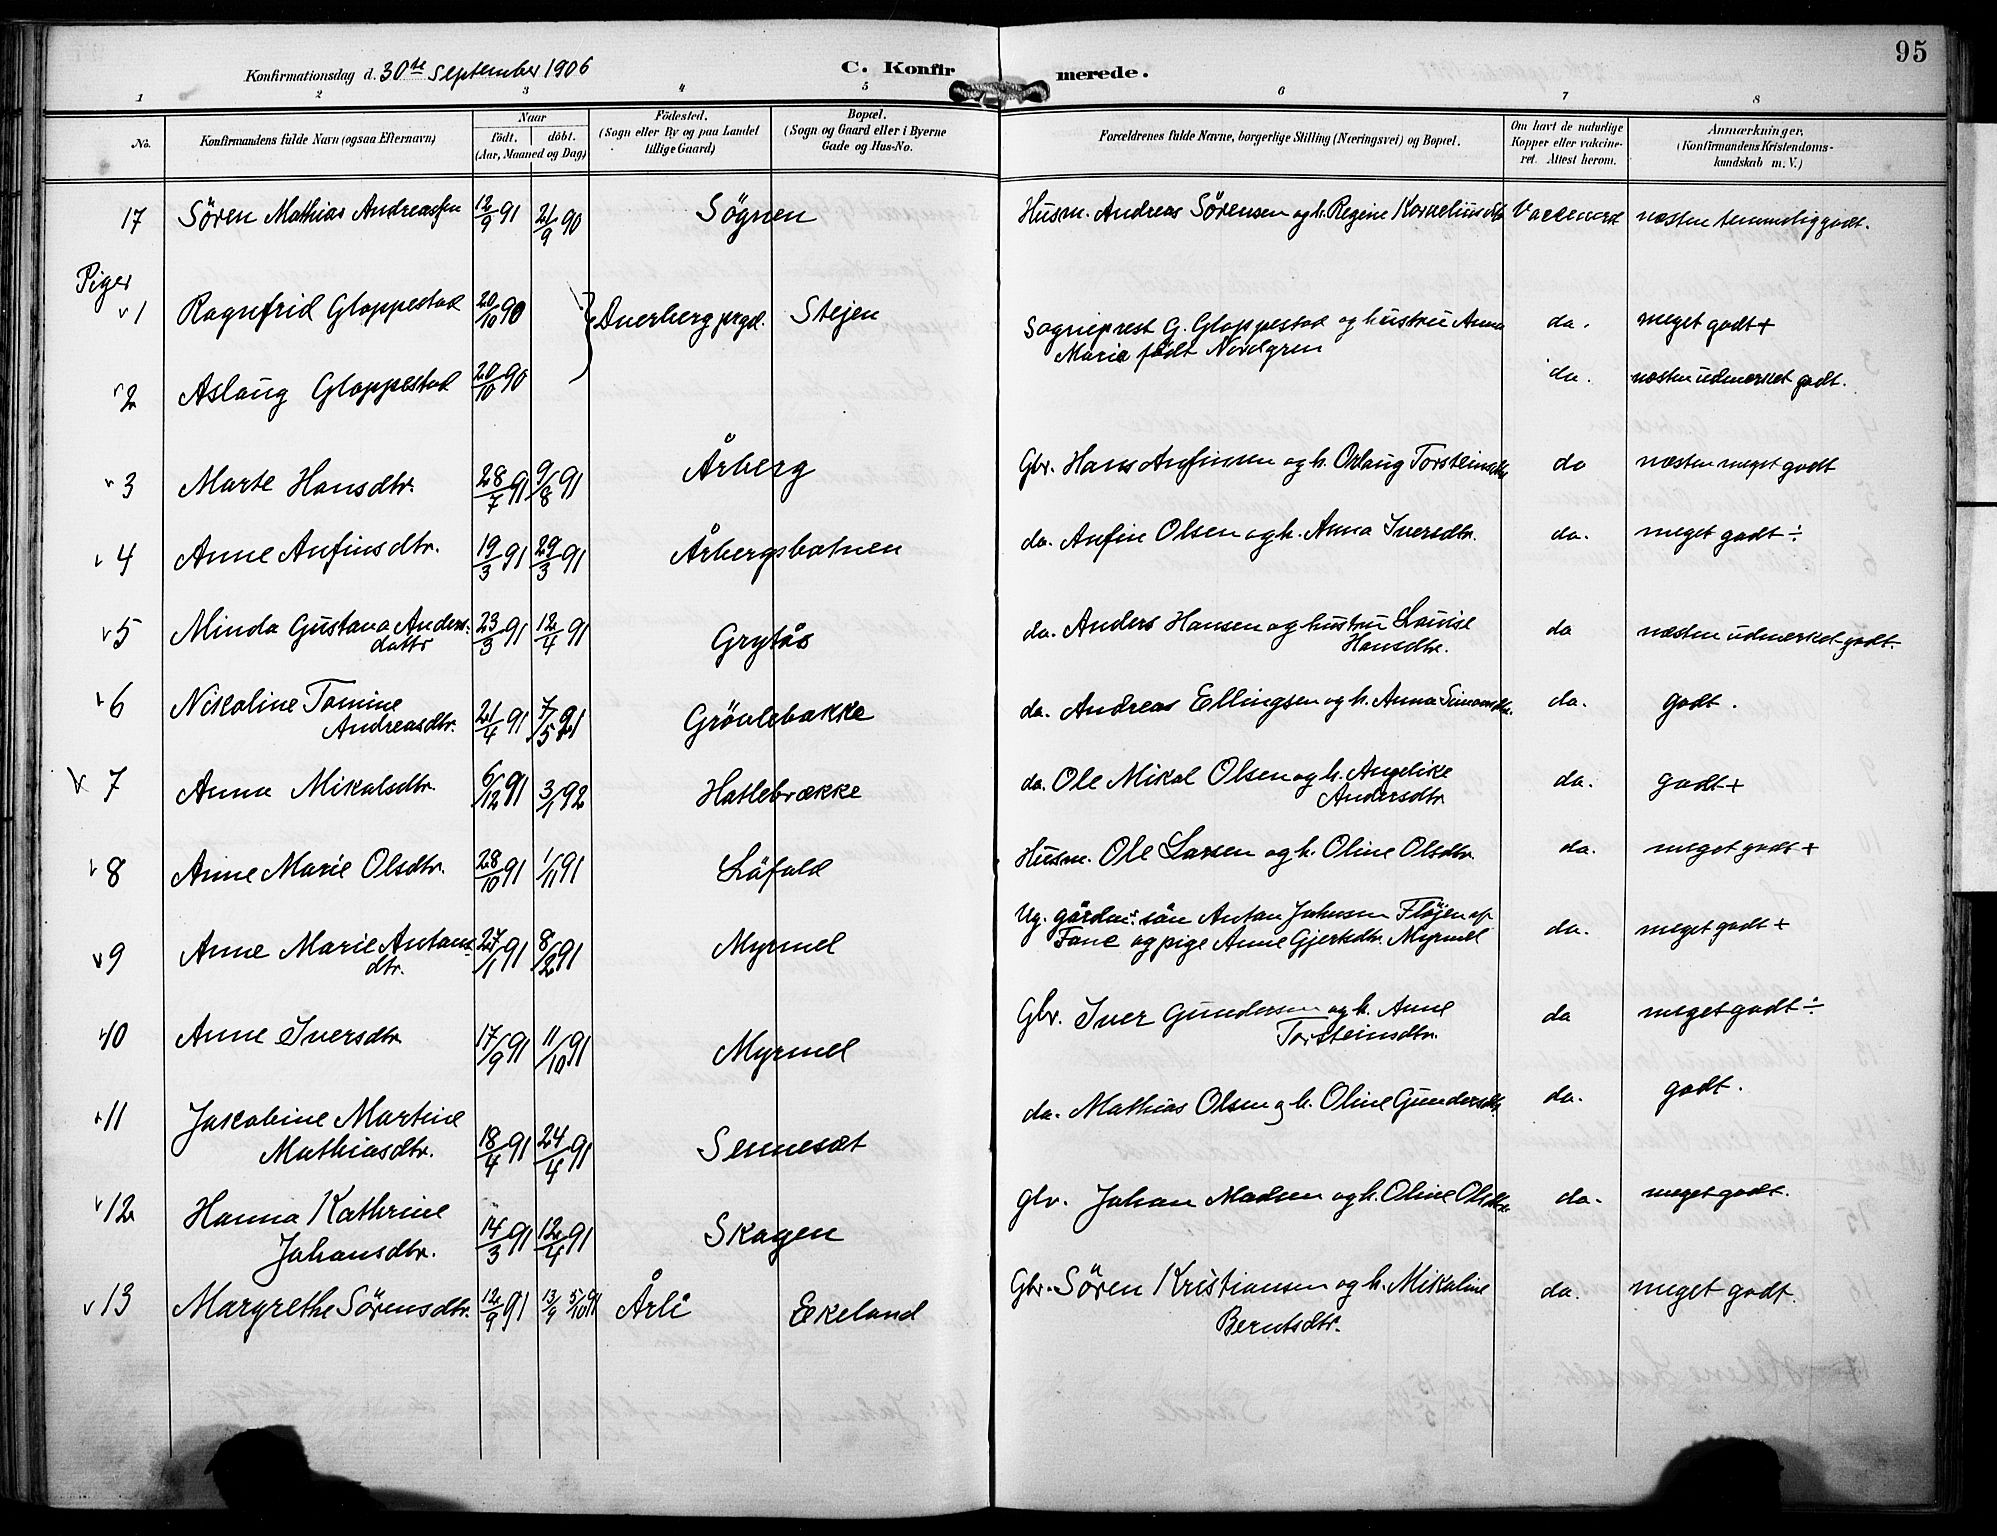 95
Konfirmationsdag d. 30te September 1906 C. Konfirmerede.
1 2 3 4 5 6 7 8
No. Konfirmandens fulde Navn (ogsaa Efternavn) Naar født. døbt. (Aar, Maaned og Dag) Fødested. (Sogn eller By og paa Landet tillige Gaard) Bopæl. (Sogn og Gaard eller i Byerne Gade og Hus-No. Forældrenes fulde Navne, borgerlige Stilling (Næringsvei) og Bopæl. Om havt de naturlige Kopper eller vaccineret. Attest herom. Anmærkninger. (Konfirmandens Kristendomskundskab m. V.)
17 Sören Mathias Andreassen 12/9 91 21/9 90 Sögnen Husm. Andreas Sörensen og h. Regine Korneliusdtr. næsten temmelig godt.
Piger
1 Ragnfrid Gloppestad 20/10 90 prgd. Stejen Sogneprest G. Gloppestad og hustru Anna Marie født Nordgren do. meget godt +
2 Aslaug Gloppestad 20/10 90 do. næsten udmerket godt.
3 Marte Hansdtr. 28/7 91 9/8 91 Årberg Gbr. Hans Anfinsen og h. Orlaug Torsteinsdtr. do næsten meget godt
4 Anne Anfinsdtr. 19/3 91 29/3 91 Årbergsbotnen do. Anfin Olsen og h. Anna Iversdtr. do. meget godt ÷
5 Minda Gustava Andersdattr 23/3 91 12/4 91 Grytås do. Anders Hansen og hustru Louise Hansdtr. do næsten udmerket godt.
6 Nikoline Tomine Andreasdtr. 21/4 91 7/5 91 Grönlebakke do. Andreas Ellingsen og h. Anna Simonsdtr. do. godt.
7 Anna Mikalsdtr. 6/12 91 3/1 92 Hatlebrække do. Ole Mikal Olsen og h. Angelike Andersdtr. do. godt +
8 Anne Marie Olsdtr. 28/10 91 1/11 91 Låfald Husm. Ole Larsen og h. Oline Olsdtr. do. meget godt +
9 Anne Marie Antonsdtr. 27/1 91 8/2 91 Myrmel Ug. gårdm. sön Anton Johnsen Flöjen af Fane og pige Anne Gjertsdtr. Myrmel do. meget godt +
10 Anne Iversdtr 17/9 91 11/10 91 Myrmel Gbr. Iver Gundersen og h. Anne Torsteinsdtr. do meget godt ÷
11 Jakobine Martine Mathiasdtr. 18/4 91 24/4 91 Sennesæt do. Mathias Olsen og h. Oline Gundersdtr. do. godt.
12 Hanna Kathrine Johansdtr. 14/3 91 12/4 91 Skogen gbr. Johan Madsen og h. Oline Olsdtr. do. meget godt.
13 Margrethe Sörensdtr. 12/9 91 13/9 5/10 91 Årli Ekeland Gbr. Sören Kristiansen og h. Mikaline Berntsdtr. do. meget godt.